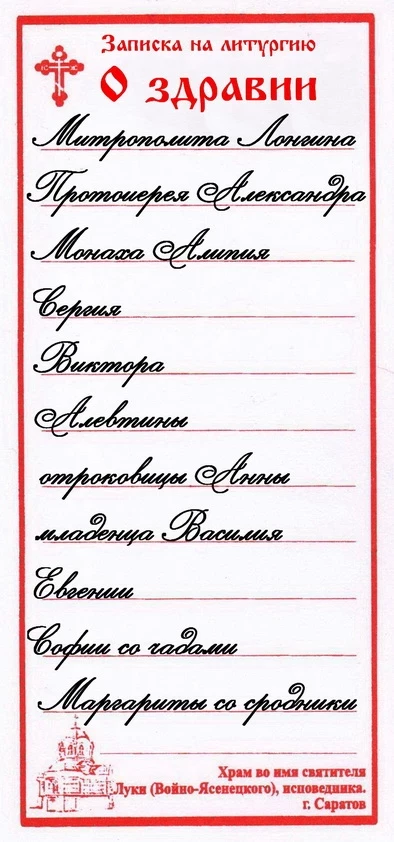 Записка на литургию
О здравии
Митрополита Лонгина
Протоиерея Александра
Монаха Алипия
Сергия
Виктора
Алевтины
отроковицы Анны
младенца Василия
Евгении
Софии со чадами
Маргариты со сродники
Храм во имя святителя
Луки (Войно-Ясенецкого), исповедника.
г. Саратов